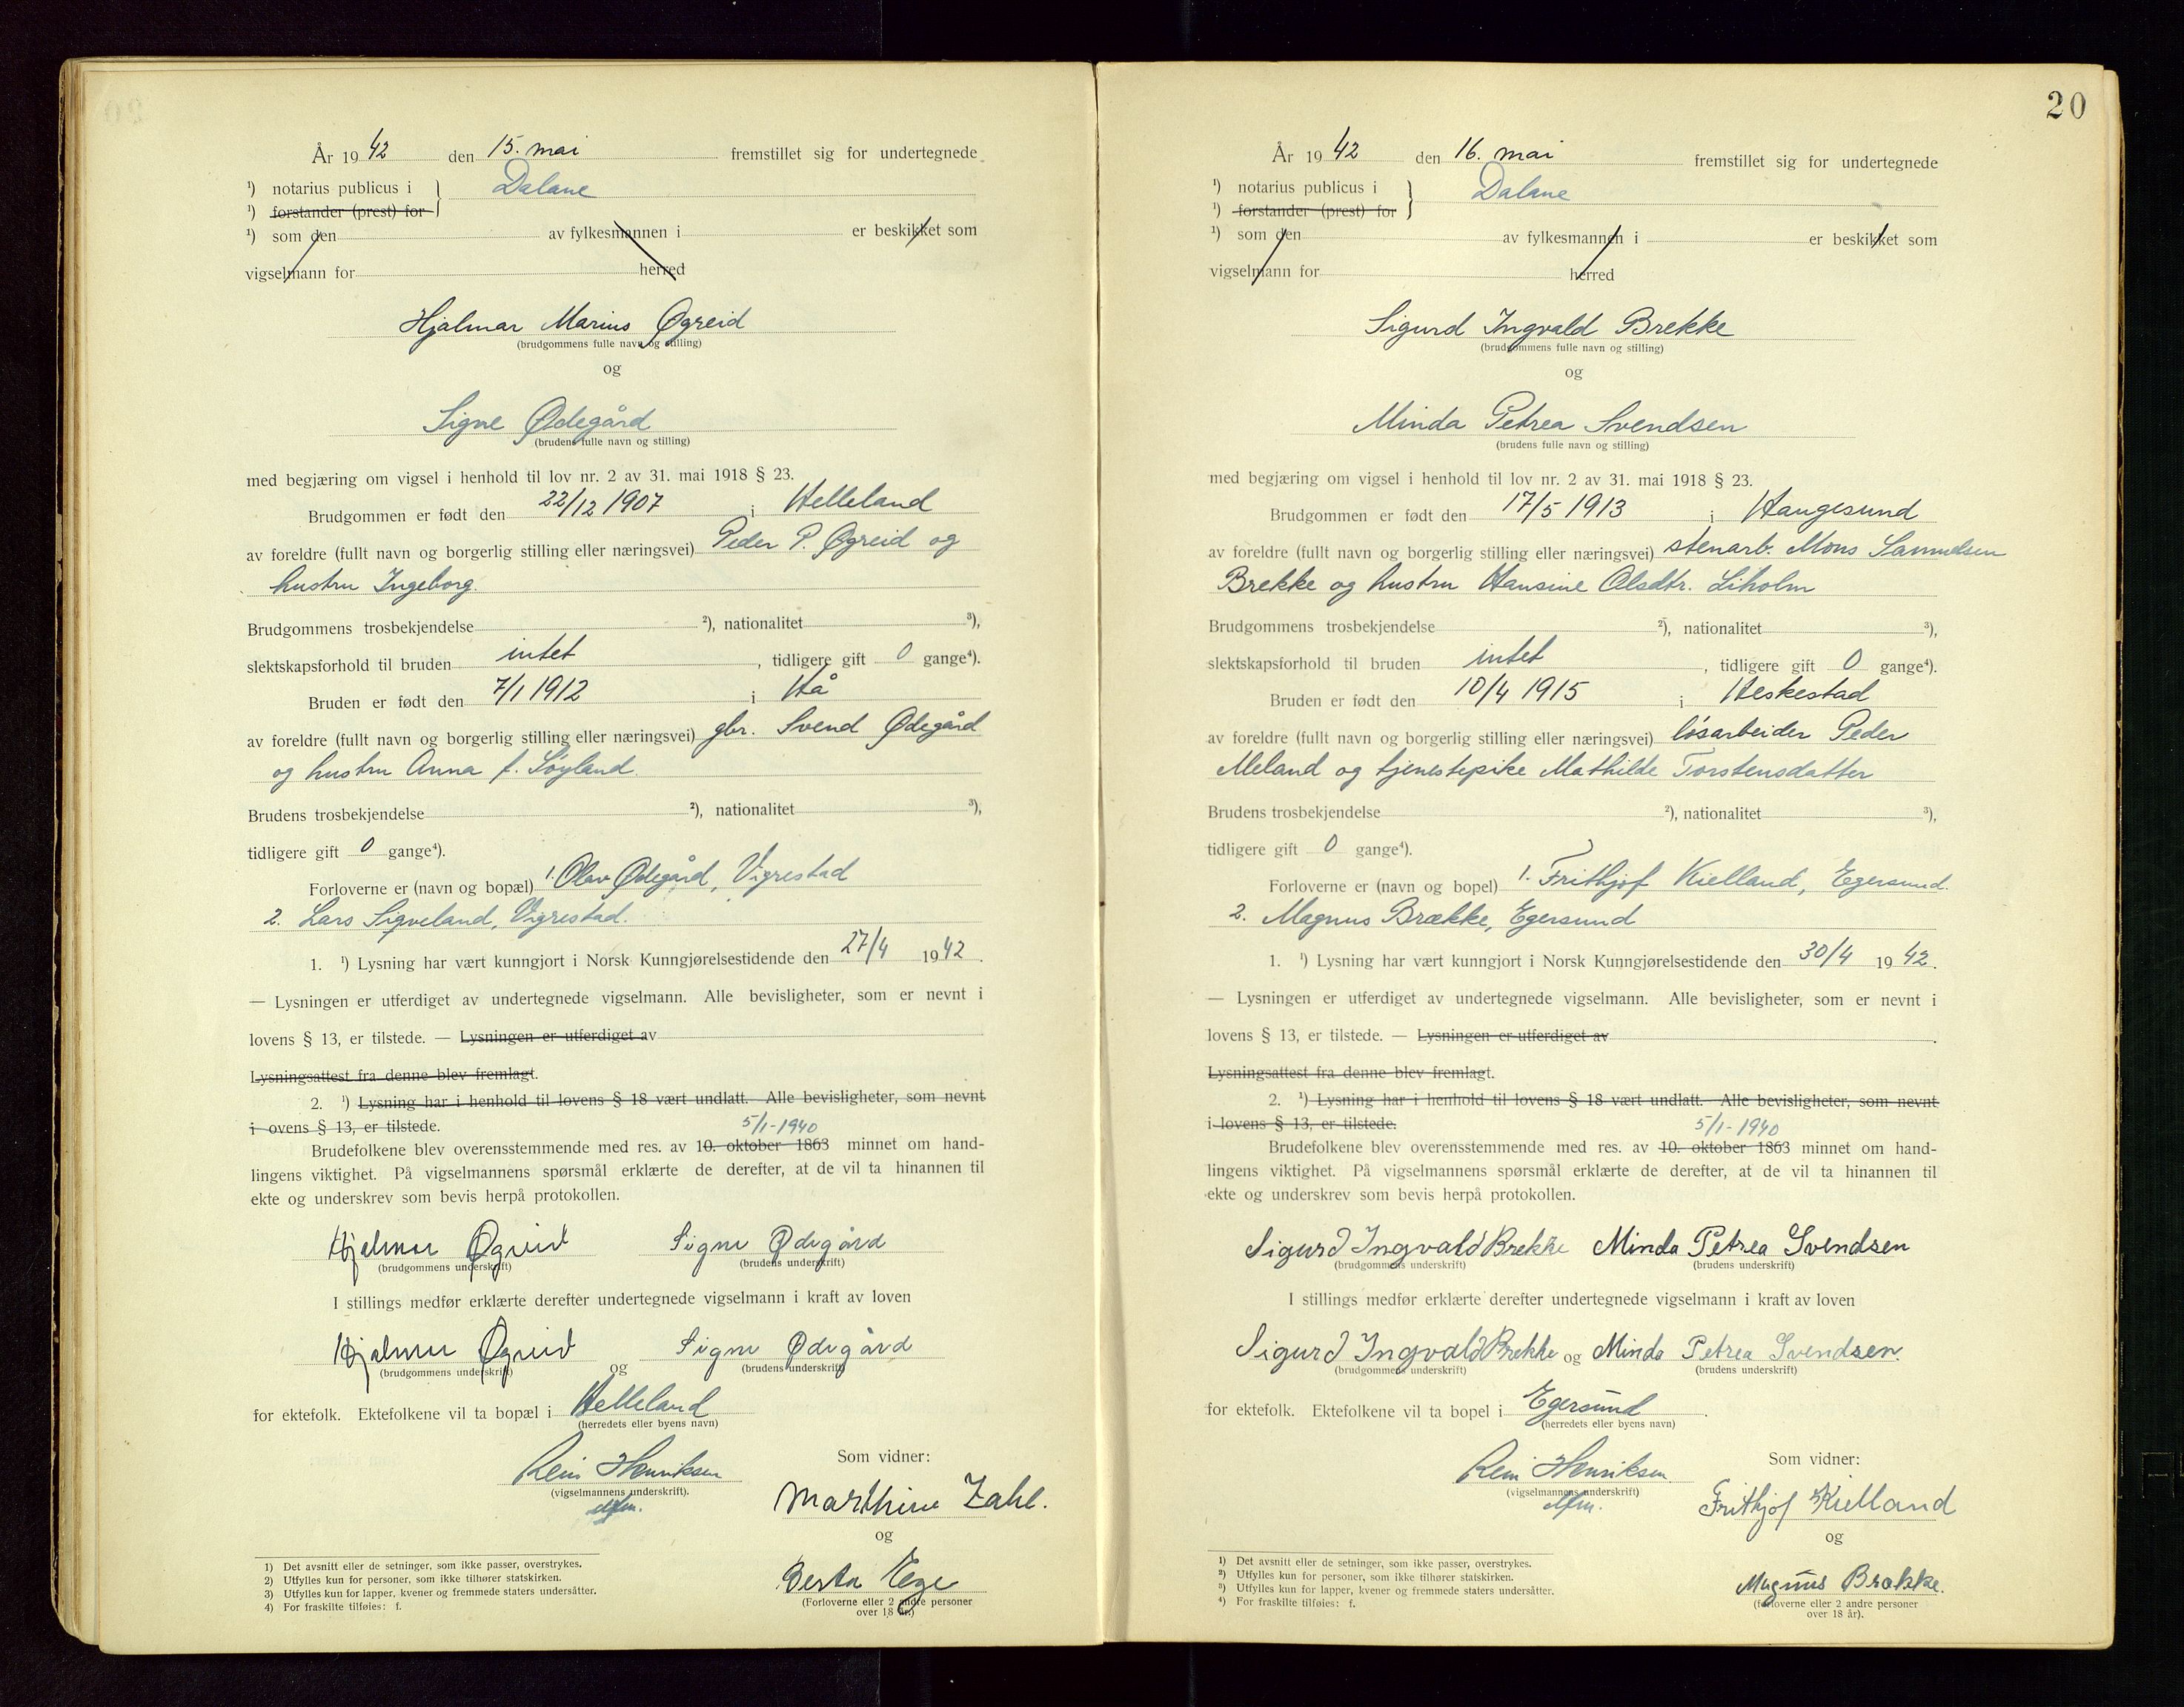 År 1942 den 15. mai fremstillet sig for undertegnede
¹) notarius publicus i } Dalane
¹) forstander (prest) for
¹) som den av fylkesmannen i er beskikket som
vigselmann for herred
Hjalmar Marius Øgreid
(brudgommens fulle navn og stilling)
og
Signe Ødegård
(brudens fulle navn og stilling)
med begjæring om vigsel i henhold til lov nr. 2 av 31. mai 1918 § 23.
Brudgommen er født den 22/12 1907 i Helleland
av foreldre (fullt navn og borgerlig stilling eller næringsvei) Peder P. Øgreid og
hustru Ingeborg.
Brudgommens trosbekjendelse ²), nationalitet ³),
slektskapsforhold til bruden intet, tidligere gift 0 gange⁴).
Bruden er født den 7/1 1912 i Hå
av foreldre (fullt navn og borgerlig stilling eller næringsvei) gbr. Svend Ødegård
og hustru Anna f. Søyland.
Brudens trosbekjendelse ²), nationalitet ³),
tidligere gift 0 gange⁴).
Forloverne er (navn og bopæl) 1. Olav Ødegård, Vigrestad
2. Lars Sigveland, Vigrestad.
1. ¹) Lysning har vært kunngjort i Norsk Kunngjørelsestidende den 27/4 1942.
— Lysningen er utferdiget av undertegnede vigselmann. Alle bevisligheter, som er nevnt i
lovens § 13, er tilstede. — Lysningen er utferdiget av
Lysningsattest fra denne blev fremlagt.
2. ¹) Lysning har i henhold til lovens § 18 vært undlatt. Alle bevisligheter, som nevnt
i ovens § 13, er tilstede.
5/1-1940
Brudefolkene blev overensstemmende med res. av 10. oktober 1863 minnet om hand-
lingens viktighet. På vigselmannens spørsmål erklærte de derefter, at de vil ta hinannen til
ekte og underskrev som bevis herpå protokollen.
Hjalmar Øgreid Signe Ødegård
(brudgommens underskrift) (brudens underskrift)
I stillings medfør erklærte derefter undertegnede vigselmann i kraft av loven
Hjalmar Øgreid og Signe Ødegård
(brudgommens underskrift) (brudens underskrift)
for ektefolk. Ektefolkene vil ta bopæl i Helleland
(herredets eller byens navn)
Rein Henriksen
(vigselmannens underskrift).
Som vidner:
Marthine Zahl.
og
Berta Ege
(Forloverne eller 2 andre personer
over 18 år.)
1) Det avsnitt eller de setninger, som ikke passer, overstrykes.
2) Utfylles kun for personer, som ikke tilhører statskirken.
3) Utfylles kun for lapper, kvener og fremmede staters undersåtter.
4) For fraskilte tilføies: f.
20
År 1942 den 16. mai fremstillet sig for undertegnede
¹) notarius publicus i } Dalane
¹) forstander (prest) for
¹) som den av fylkesmannen i er beskikket som
vigselmann for herred
Sigurd Ingvald Brekke
(brudgommens fulle navn og stilling)
og
Minda Petrea Svendsen
(brudens fulle navn og stilling)
med begjæring om vigsel i henhold til lov nr. 2 av 31. mai 1918 § 23.
Brudgommen er født den 17/5 1913 i Haugesund
av foreldre (fullt navn og borgerlig stilling eller næringsvei) stenarb. Mons Samuelsen
Brekke og hustru Hansine Olsdtr. Liholm
Brudgommens trosbekjendelse ²), nationalitet ³),
slektskapsforhold til bruden intet, tidligere gift 0 gange⁴).
Bruden er født den 10/4 1915 i Heskestad
av foreldre (fullt navn og borgerlig stilling eller næringsvei) løsarbeider Peder
Meland og tjenestepike Mathilde Torstensdatter
Brudens trosbekjendelse ²), nationalitet ³),
tidligere gift 0 gange⁴).
Forloverne er (navn og bopel) 1. Frithjof Kielland, Egersund.
2. Magnus Brække, Egersund
1. ¹) Lysning har vært kunngjort i Norsk Kunngjørelsestidende den 30/4 1942.
— Lysningen er utferdiget av undertegnede vigselmann. Alle bevisligheter, som er nevnt i
lovens § 13, er tilstede. — Lysningen er utferdiget av .
Lysningsattest fra denne blev fremlagt.
2. ¹) Lysning har i henhold til lovens § 18 vært undlatt. Alle bevisligheter, som nevnt
i lovens § 13, er tilstede.
5/1-1940
Brudefolkene blev overensstemmende med res. av 10. oktober 1863 minnet om hand-
lingens viktighet. På vigselmannens spørsmål erklærte de derefter, at de vil ta hinannen til
ekte og underskrev som bevis herpå protokollen.
Sigurd Ingvald Brekke Minda Petrea Svendsen
(brudgommens underskrift) (brudens underskrift)
I stillings medfør erklærte derefter undertegnede vigselmann i kraft av loven
Sigurd Ingvald Brekke og Minda Petrea Svendsen.
(brudgommens underskrift) (brudens underskrift)
for ektefolk. Ektefolkene vil ta bopel i Egersund.
(herredets eller byens navn)
Rein Henriksen
(vigselmannens underskrift)
Som vidner:
Frithjof Kielland
og
Magnus Brække.
(forloverne eller 2 andre personer
over 18 år).
¹) Det avsnitt eller de setninger, som ikke passer, overstrykes.
²) Utfylles kun for personer, som ikke tilhører statskirken.
³) Utfylles kun for lapper, kvener og fremmede staters undersåtter.
⁴) For fraskilte tilføies: f.